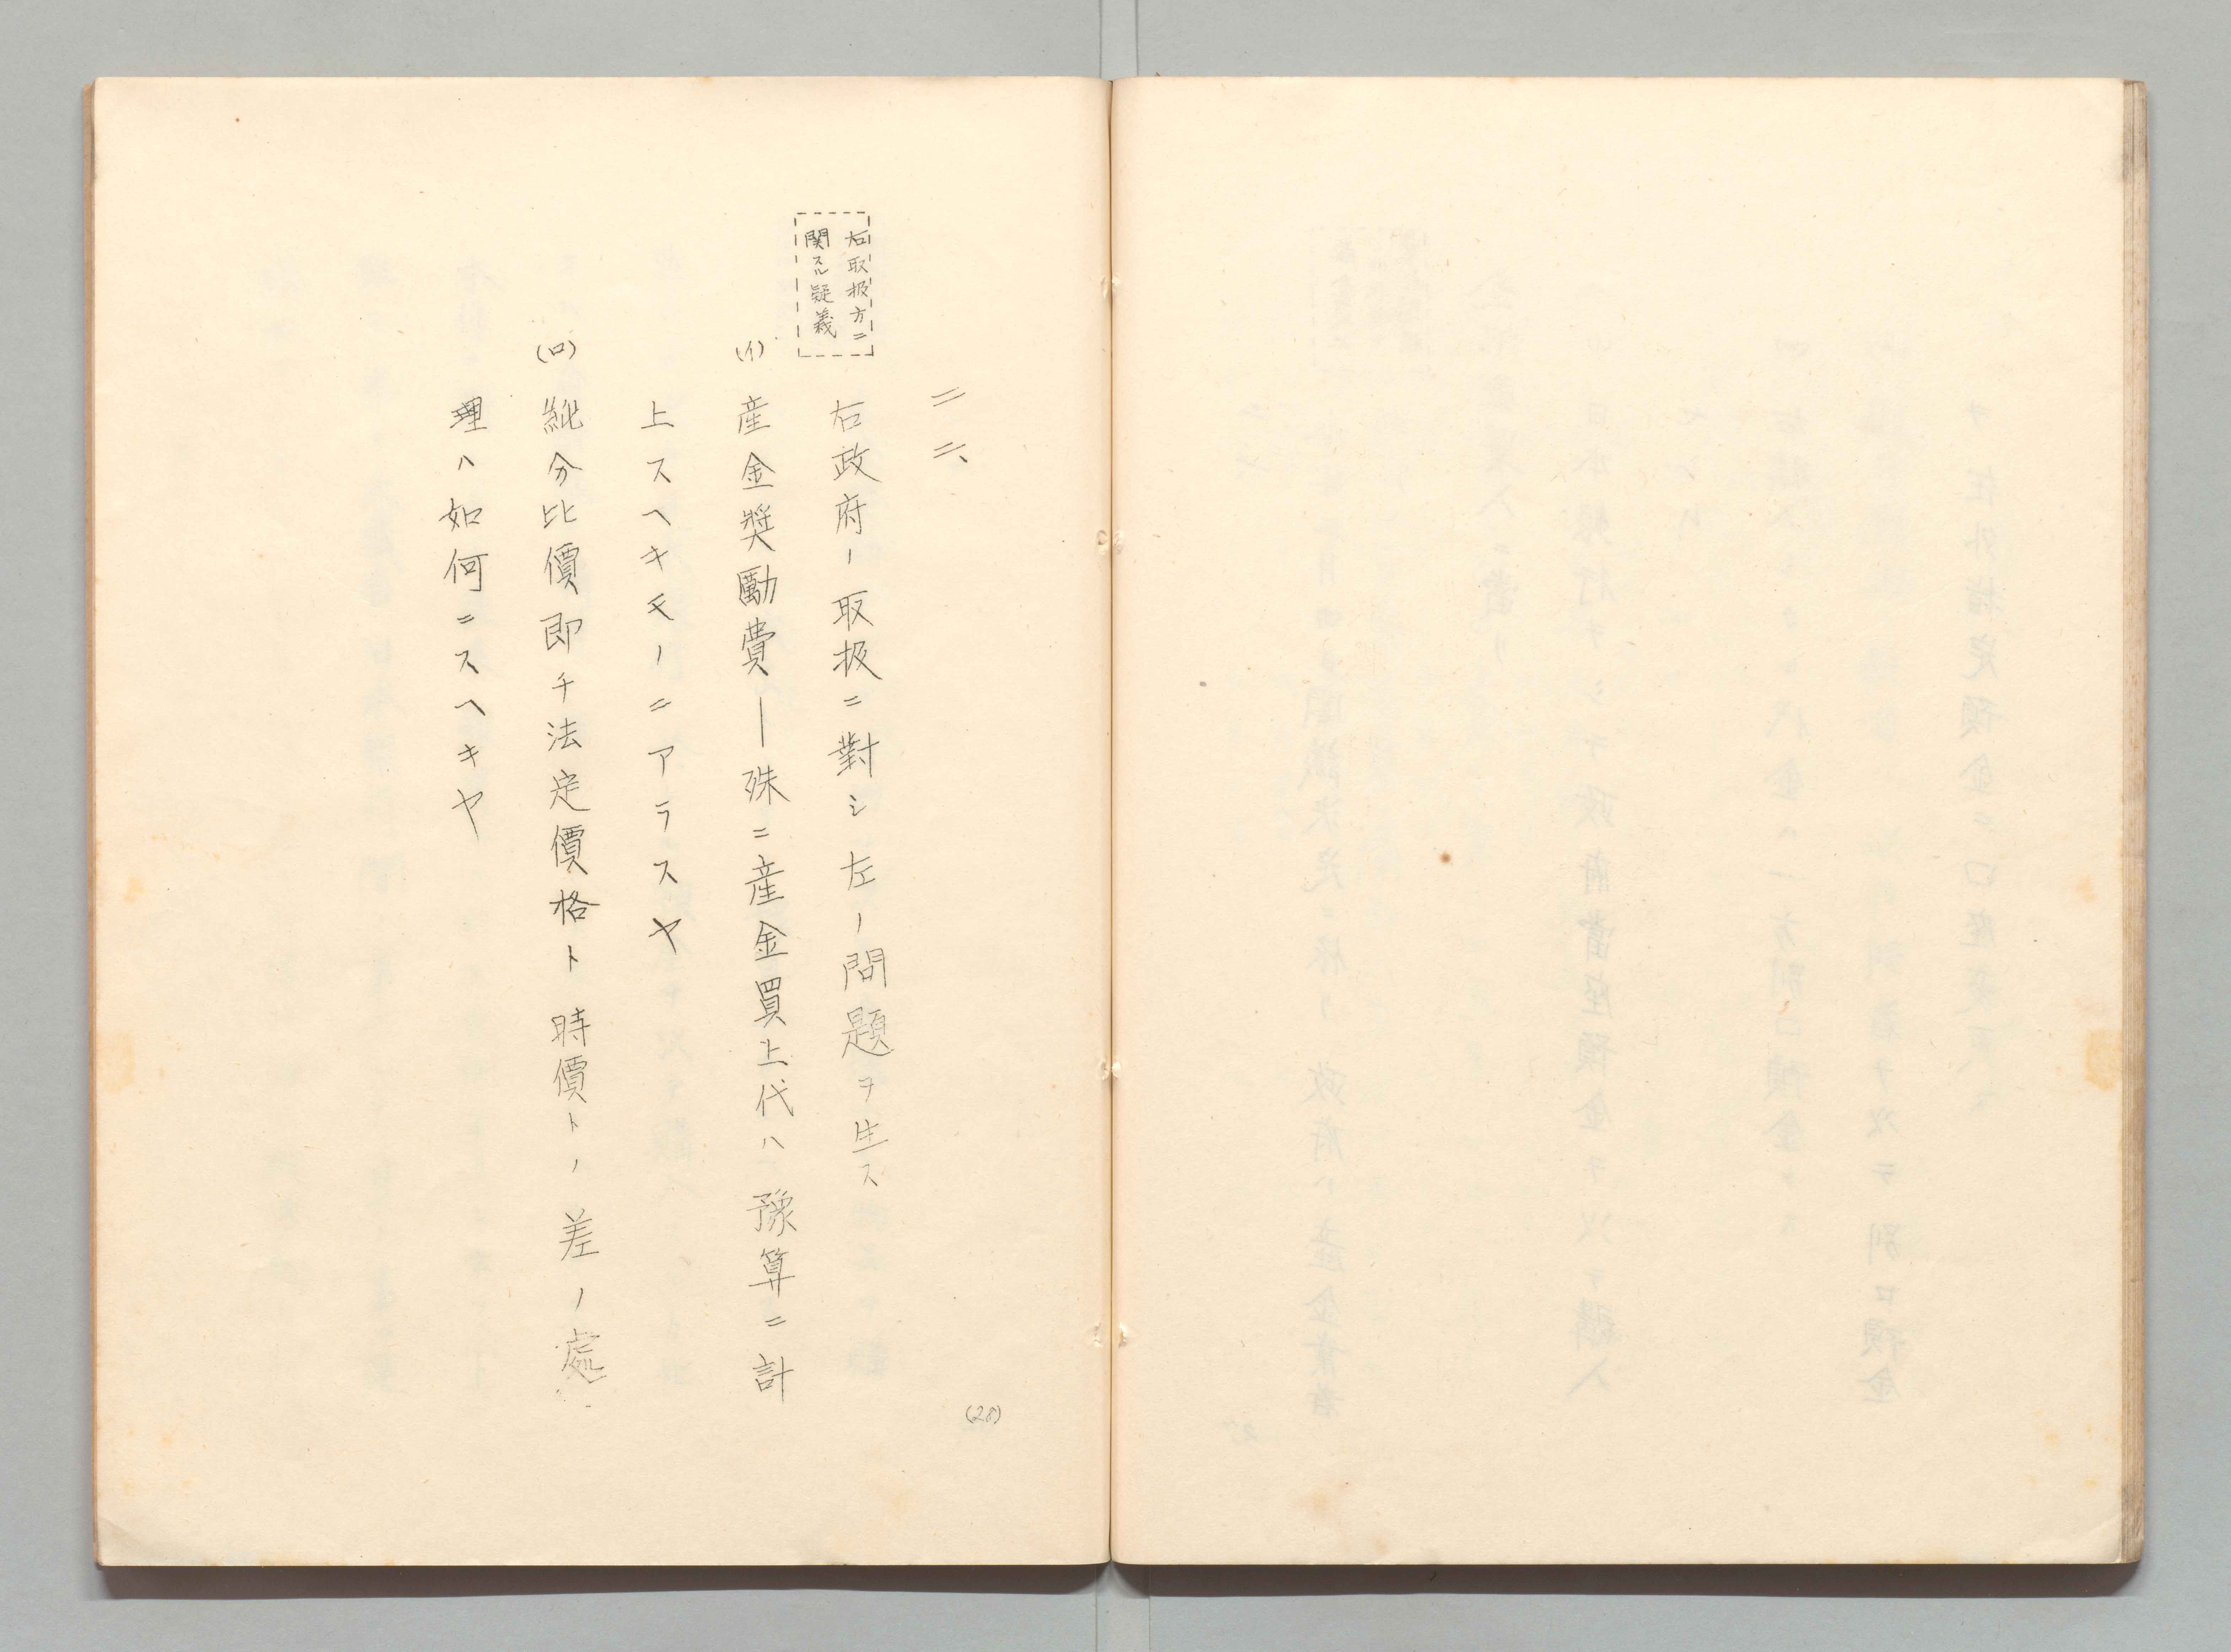 二六、
右取扱方ニ
関スル疑義
右政府ノ取扱ニ對シ左ノ問題ヲ生ス
(イ)産金奨勵費―殊ニ産金買上代ハ豫算ニ計
上スヘキモノニアラスヤ
(ロ)純分比價即チ法定價格ト時價トノ差ノ處
理ハ如何ニスヘキヤ